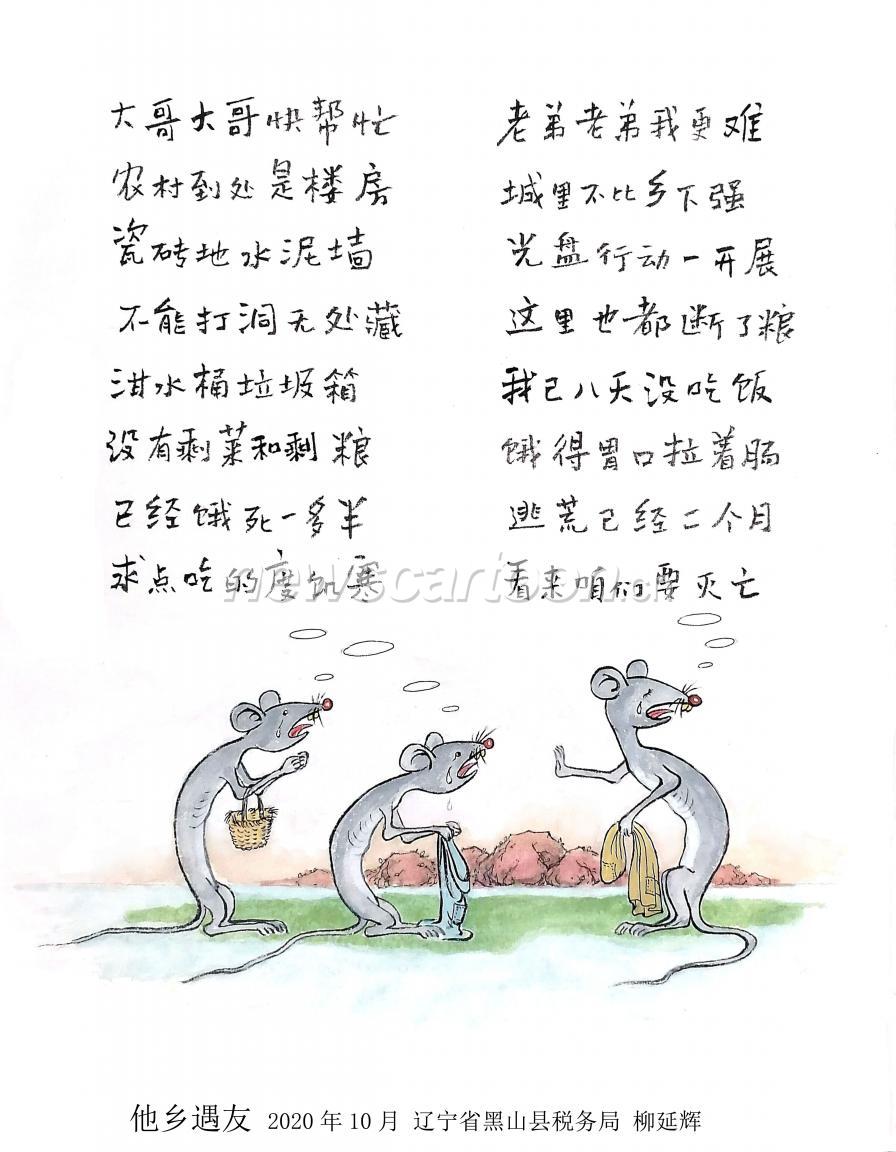 大哥大哥快帮忙
农村到处是楼房
瓷砖地水泥墙
不能打洞无处藏
泔水桶垃圾箱
没有剩菜和剩粮
已经饿死一多半
求点吃的度饥寒
老弟老弟我更难
城里不比乡下强
光盘行动一开展
这里也都断了粮
我已八天没吃饭
饿得胃口拉着肠
逃荒已经二个月
看来咱们要灭亡
newscartoon.cn
他乡遇友 2020年10月 辽宁省黑山县税务局 柳延辉